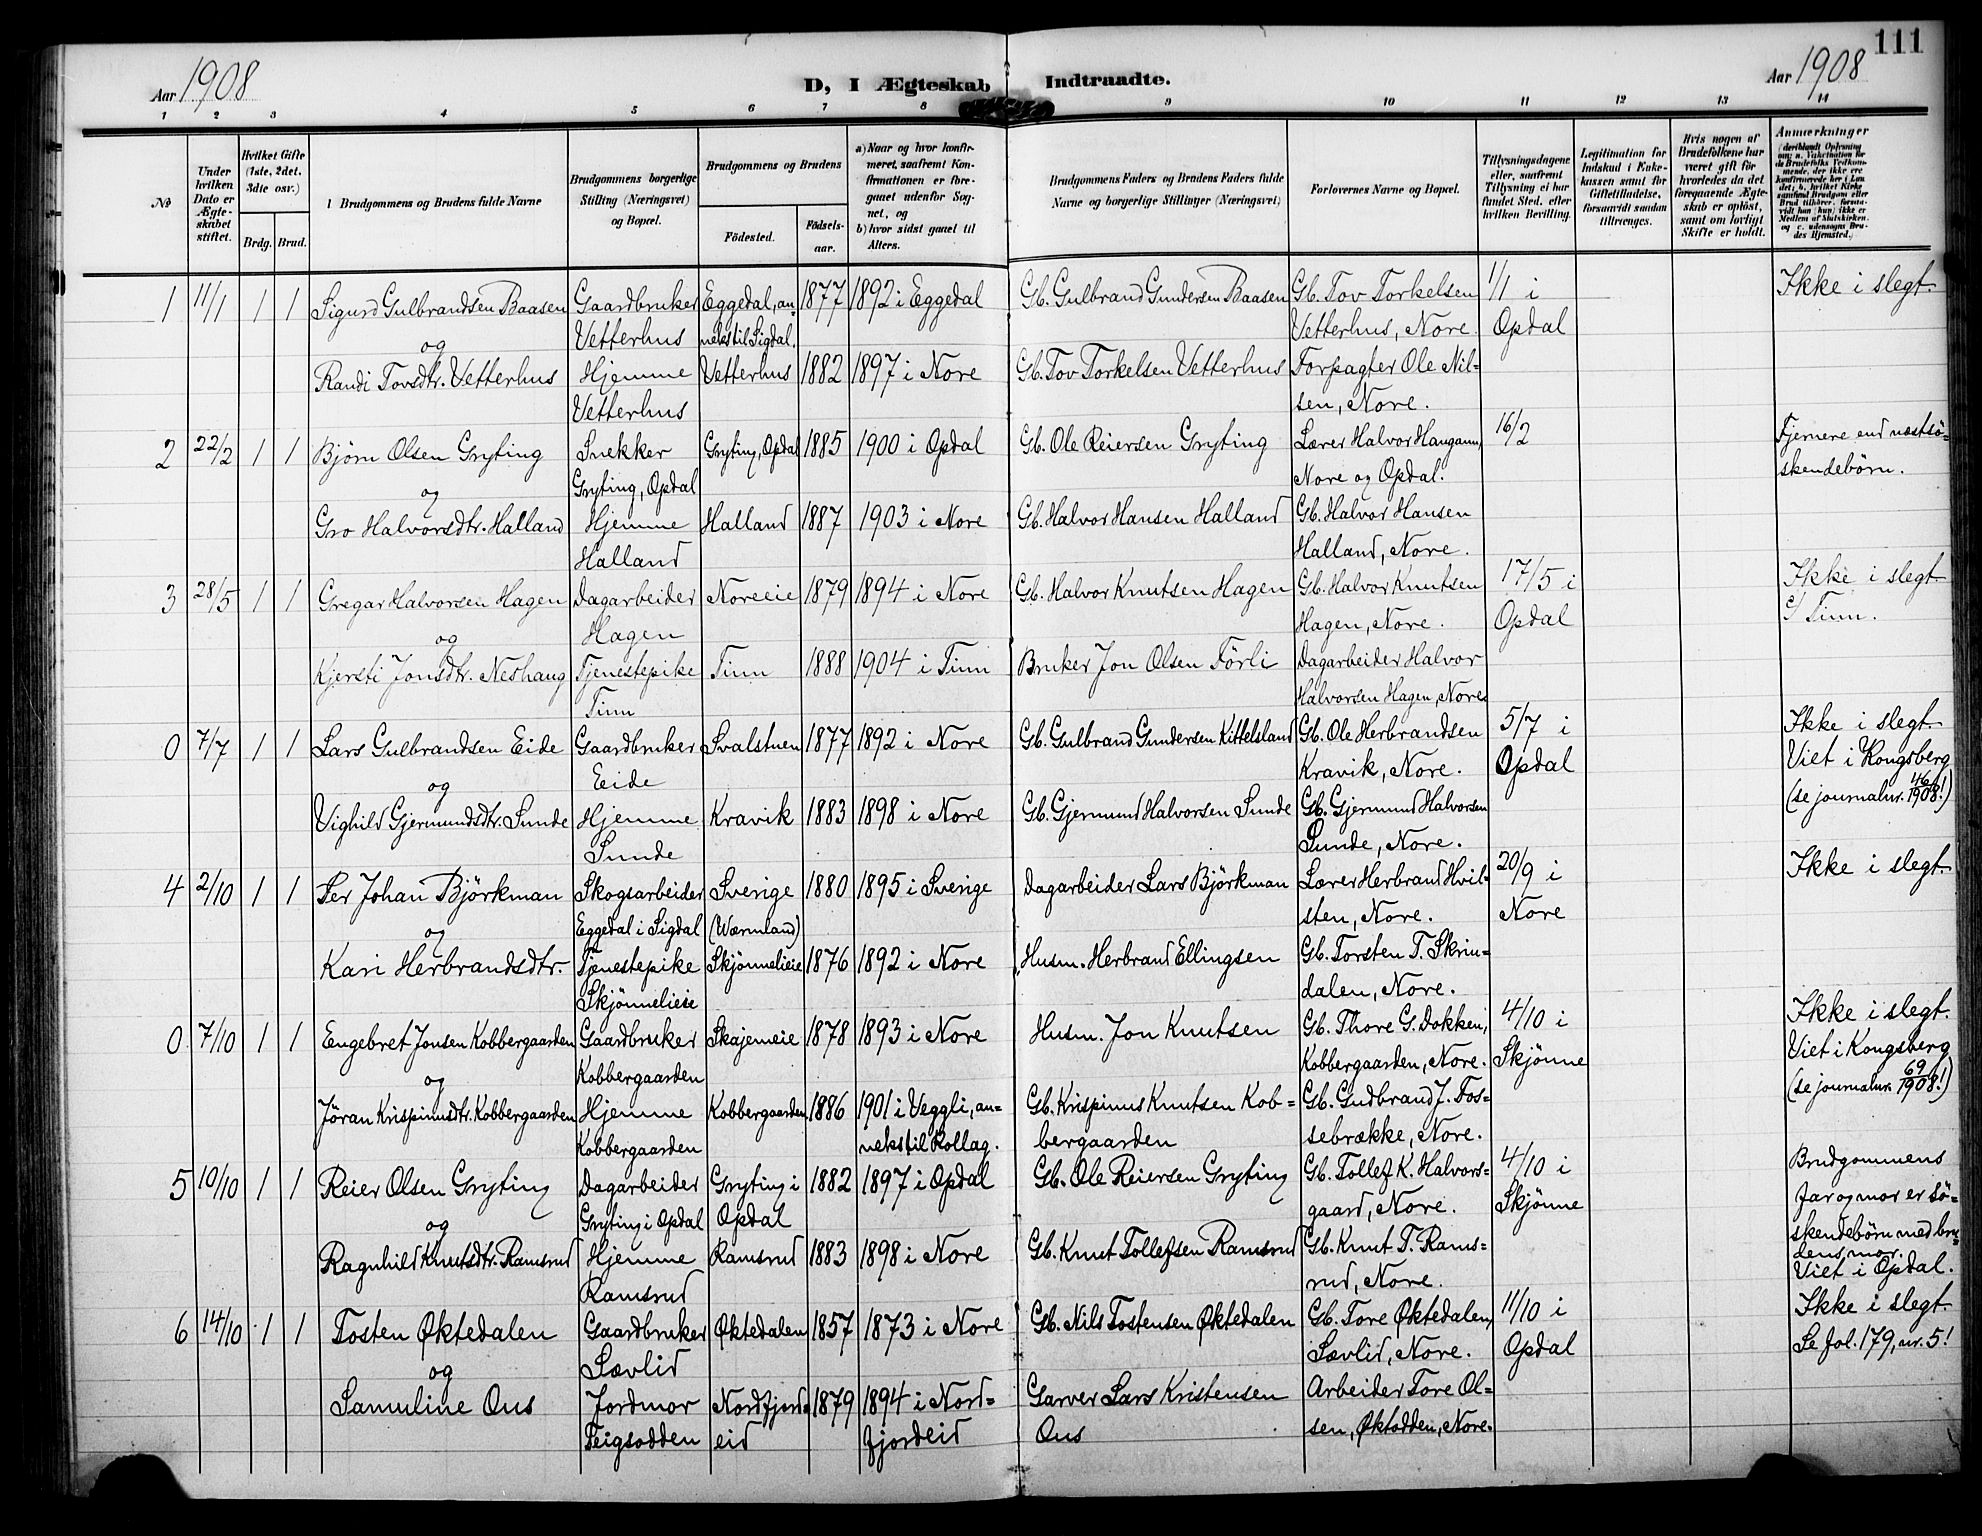 111
Aar 1908
D, I Ægteskab Indtraadte.
Aar 1908
1 2 3 4 5 6 7 8 9 10 11 12 13 14
No
Under hvilken Dato er Ægteskabet stiftet.
Hvilket Gifte (1ste, 2det, 3die osv.)
Brdg. Brud.
Brudgommens og Brudens fulde Navne
Brudgommens borgerlige Stilling (Næringsvei) og Bopæl.
Brudgommens og Brudens
Fødested.
Fødselsaar.
a) Naar og hvor konfirmeret, saafremt Konfirmationen er foregaaet udenfor Sognet, og
b) hvor sidst gaaet til Alters.
Brudgommens Faders og Brudens Faders fulde Navne og borgerlige Stillinger (Næringsvei)
Forlovernes Navne og Bopæl.
Tillysningsdagene eller, saafremt Tillysning ei har fundet Sted, efter hvilken Bevilling.
Legitimation for Indskud i Enkekassen samt for Giftetilladelse, forsaavidt saadan tiltrænges.
Hvis nogen af Brudefolkene har været gift før hvorledes da det foregaaende Ægteskab er opløst, samt om lovligt Skifte er holdt.
Anmærkninger
1 11/1 1 1 Sigurd Gulbrandsen Baasen Gaardbruker Eggedal, an- 1877 1892 i Eggedal Gb. Gulbrand Gundersen Baasen Gb. Tov Torkelsen 1/1 i Ikke i slegt.
og Vetterhus neks til Sigdal. Vetterhus, Nore. Opdal
Randi Tovsdtr. Vetterhus Hjemme Vetterhus 1882 1897 i Nore Gb. Tov Torkelsen Vetterhus Forpagter Ole Nil-
Vetterhus sen, Nore.
2 22/2 1 1 Bjørn Olsen Gryting Snekker Gryting, Opdal 1885 1900 i Opdal Gb. Ole Reiersen Gryting Lærer Halvor Haugann, 16/2 Fjernere end næstsø-
og Gryting, Opdal Nore og Opdal. skendebørn.
Gro Halvorsdtr. Halland Hjemme Halland 1887 1903 i Nore Gb. Halvor Hansen Halland Gb. Halvor Hansen
Halland Halland, Nore.
3 28/5 1 1 Gregar Halvorsen Hagen Dagarbeider Noreeie 1879 1894 i Nore Gb. Halvor Knutsen Hagen Gb. Halvor Knutsen 17/5 i Ikke i slegt.
og Hagen Hagen, Nore. Opdal c/ Tinn.
Kjersti Jonsdtr. Neshaug Tjenestepike Tinn 1888 1904 i Tinn Bruker Jon Olsen Förli Dagarbeider Halvor
Tinn Halvorsen Hagen, Nore.
0 7/7 1 1 Lars Gulbrandsen Eide Gaardbruker Svalstuen 1877 1892 i Nore Gb. Gulbrand Gundersen Kittelsland Gb. Ole Herbrandsen 5/7 i Ikke i slegt.
og Eide Kravik, Nore. Opdal Viet i Kongsberg
Vighild Gjermundsdtr. Sunde Hjemme Kravik 1883 1898 i Nore Gb. Gjermund Halvorsen Sunde Gb. Gjermund Halvorsen (se journalnr. 46/1908!)
Sunde Sunde, Nore.
4 2/10 1 1 Per Johan Björkman Skogsarbeider Sverige 1880 1895 i Sverige Dagarbeider Lars Björkman Lærer Herbrand Hvil- 20/9 i Ikke i slegt.
og Eggedal i Sigdal (Wærmland) sten, Nore. Nore
Kari Herbrandsdtr. Tjenestepike Skjønnelieie 1876 1892 i Nore Husm. Herbrand Ellingsen Gb. Torsten T. Skrin-
Skjønnelieie dalen, Nore.
0 7/10 1 1 Engebret Jonsen Kobbergaarden Gaardbruker Skajemeie 1878 1893 i Nore Husm. Jon Knutsen Gb. Thore G. Dokken, 4/10 i Ikke i slegt.
og Kobbergaarden Kobbergaarden, Nore. Skjønne Viet i Kongsberg
Jöran Krispinusdtr. Kobbergaarden Hjemme Kobbergaarden 1886 1901 i Veggli, an- Gb. Krispinus Knutsen Kob- Gb. Gudbrand J. Fos- (se journalnr. 69/1908!)
Kobbergaarden neks til Rollag. bergaarden sebrække, Nore.
5 10/10 1 1 Reier Olsen Gryting Dagarbeider Gryting i 1882 1897 i Opdal Gb. Ole Reiersen Gryting Gb. Tollef K. Halvors- 4/10 i Brudgommens
og Gryting i Opdal Opdal gaard, Nore. Skjønne far og mor er sø-
Ragnhild Knutsdtr. Ramsrud Hjemme Ramsrud 1883 1898 i Nore Gb. Knut Tollefsen Ramsrud Gb. Knut T. Rams- skendebørn med bru-
dens mor.
Ramsrud rud, Nore. Viet i Opdal.
6 14/10 1 1 Tosten Øktedalen Gaardbruker Øktedalen 1857 1873 i Nore Gb. Nils Tostensen Øktedalen Gb. Tore Øktedalen, 11/10 i Ikke i slegt.
og Sævlid Sævlid, Nore. Opdal Se fol. 179, nr. 5!
Samuline Ous Jordmor Nordfjord- 1879 1894 i Nord- Garver Lars Kristensen Arbeider Tore Ol-
Feigsodden eid fjordeid Ous sen, Øktodden, Nore.